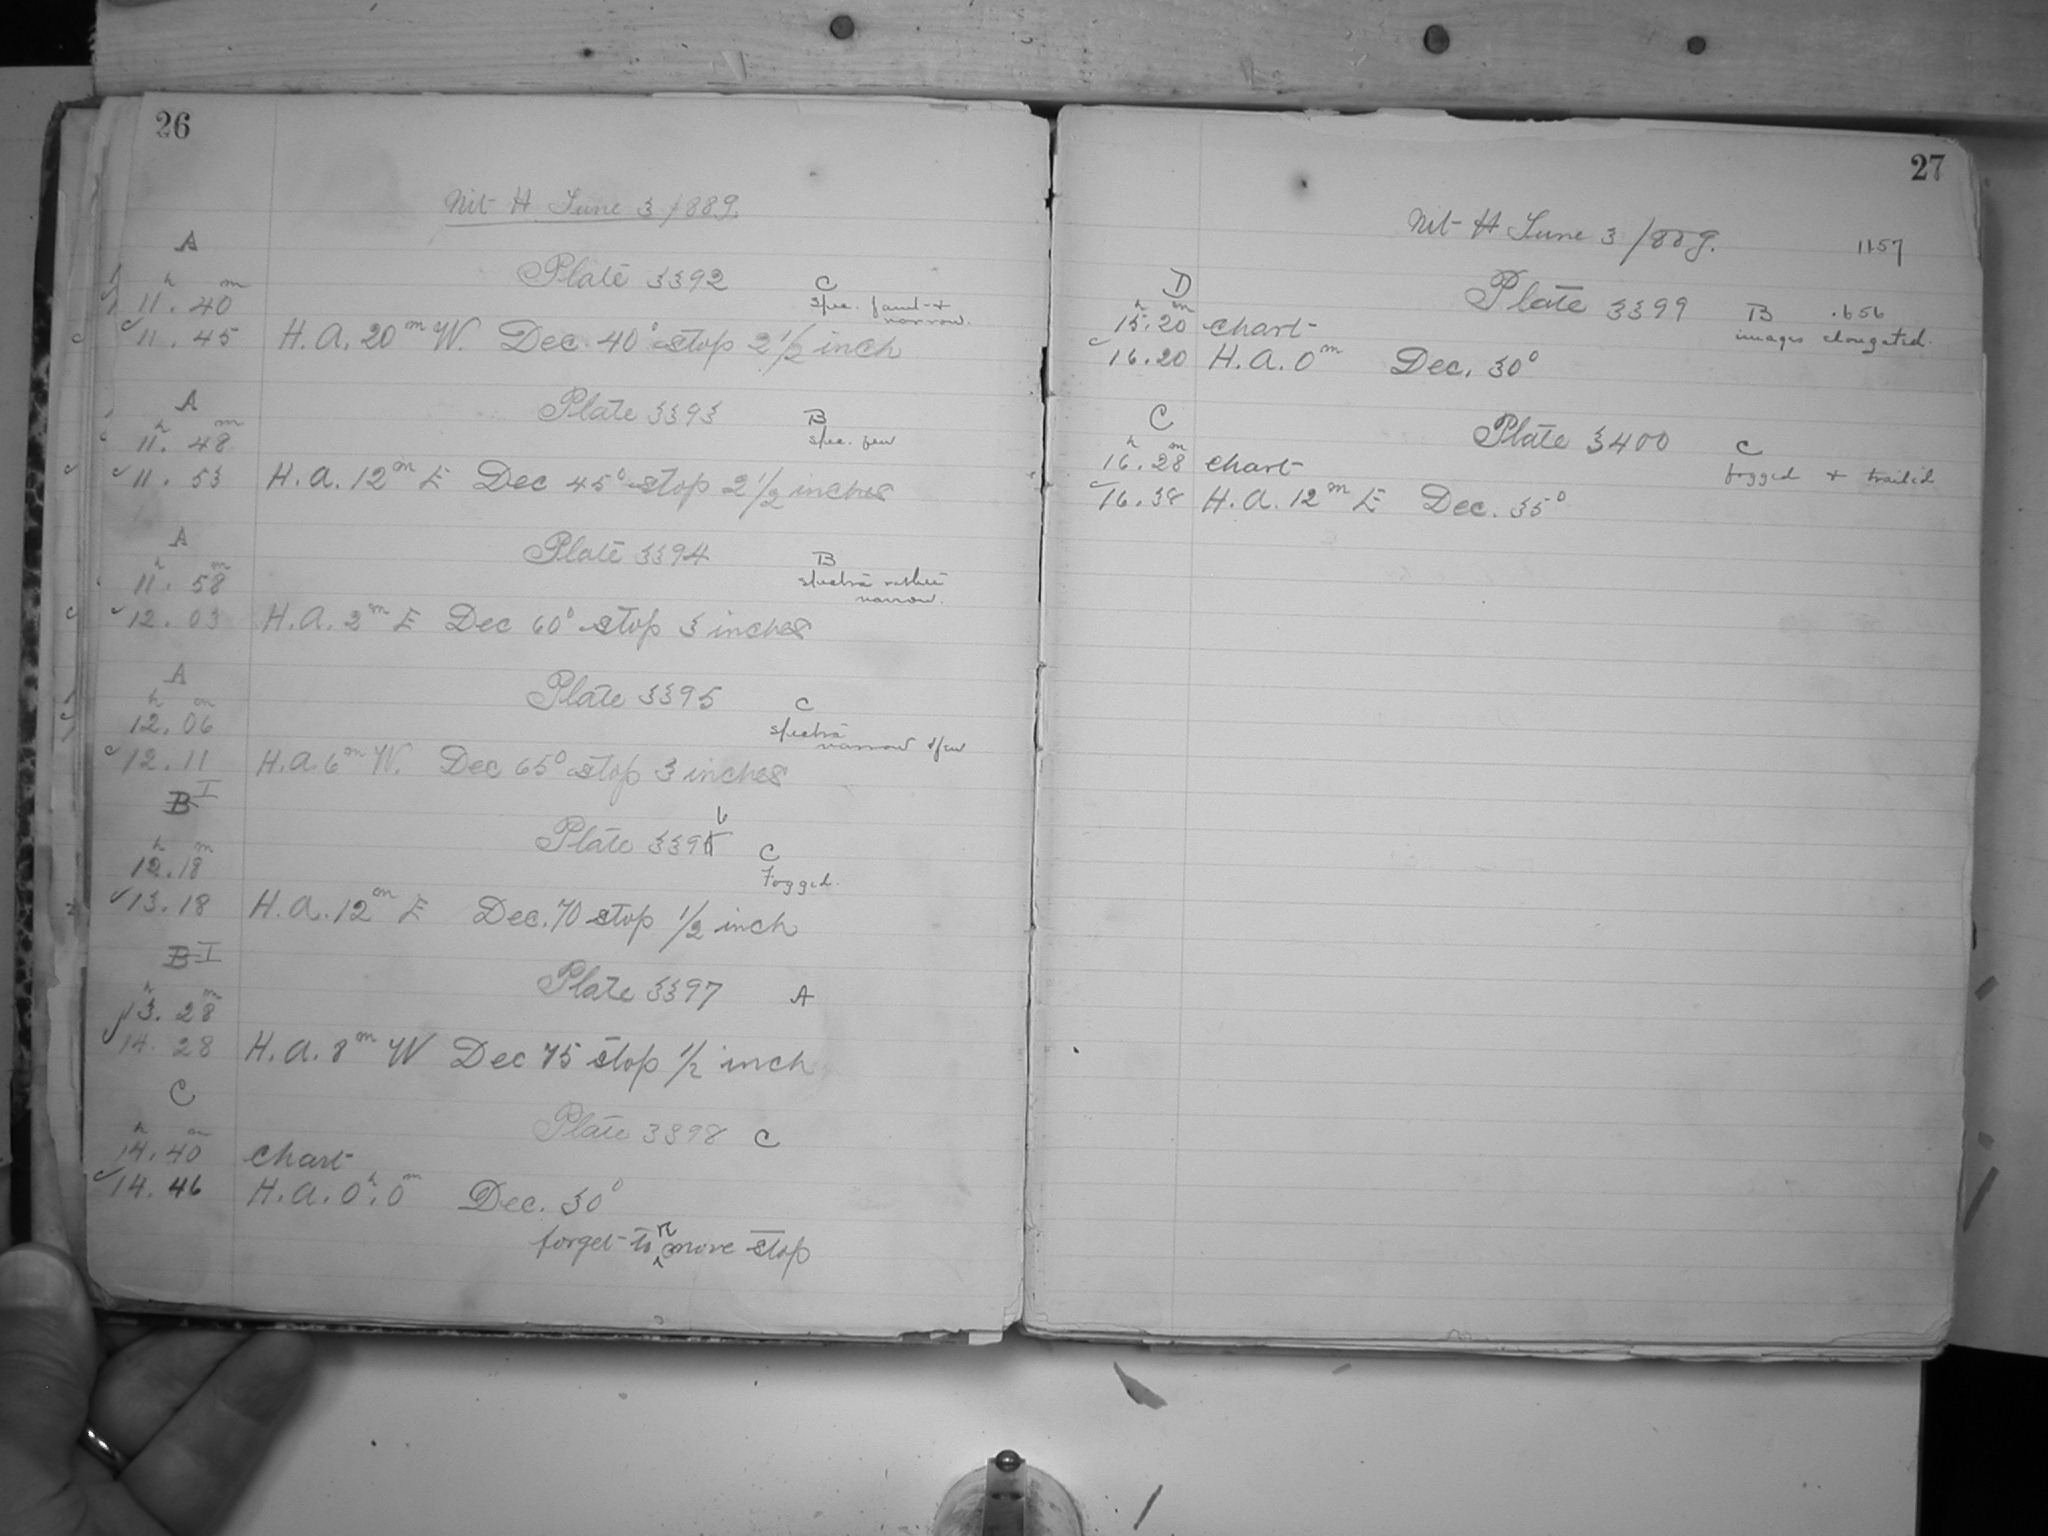 26
Nit H June 3 1889.
A
Plate 3392 C
h m
11.40 spec. faint +
narrow.
11.45 H.A. 20m W. Dec 40° stop 2 1/2 inch
A
Plate 3393 B
h m
11.48 spec. few
11.53 H.A. 12m E Dec 45° stop 2 1/2 inches
A
Plate 3394 B
h m
11.58 spectra rather
narrow.
12.03 H.A. 2m E Dec 60° stop 3 inches
A
Plate 3395 C
h m
12.06 spectra
narrow + few
12.11 H.A. 6m W. Dec 65° stop 3 inches
B I
Plate 3396 C
h m
12.18 Fogged.
13.18 H.A. 12m E Dec. 70 stop 1/2 inch
B I
Plate 3397 A
h m
13.28
14.28 H.A. 8m W Dec 75 stop 1/2 inch
C
Plate 3398 C
h m
14.40 chart
14.46 H.A. 0h.0m Dec. 30°
forget to remove stop
27
Nit H June 3 1889. 1157
D
Plate 3399 B .656
h m
15.20 chart images elongated.
16.20 H.A. 0m Dec. 30°
C
Plate 3400 C
h m
16.28 chart fogged + trailed
16.38 H.A. 12m E Dec. 35°